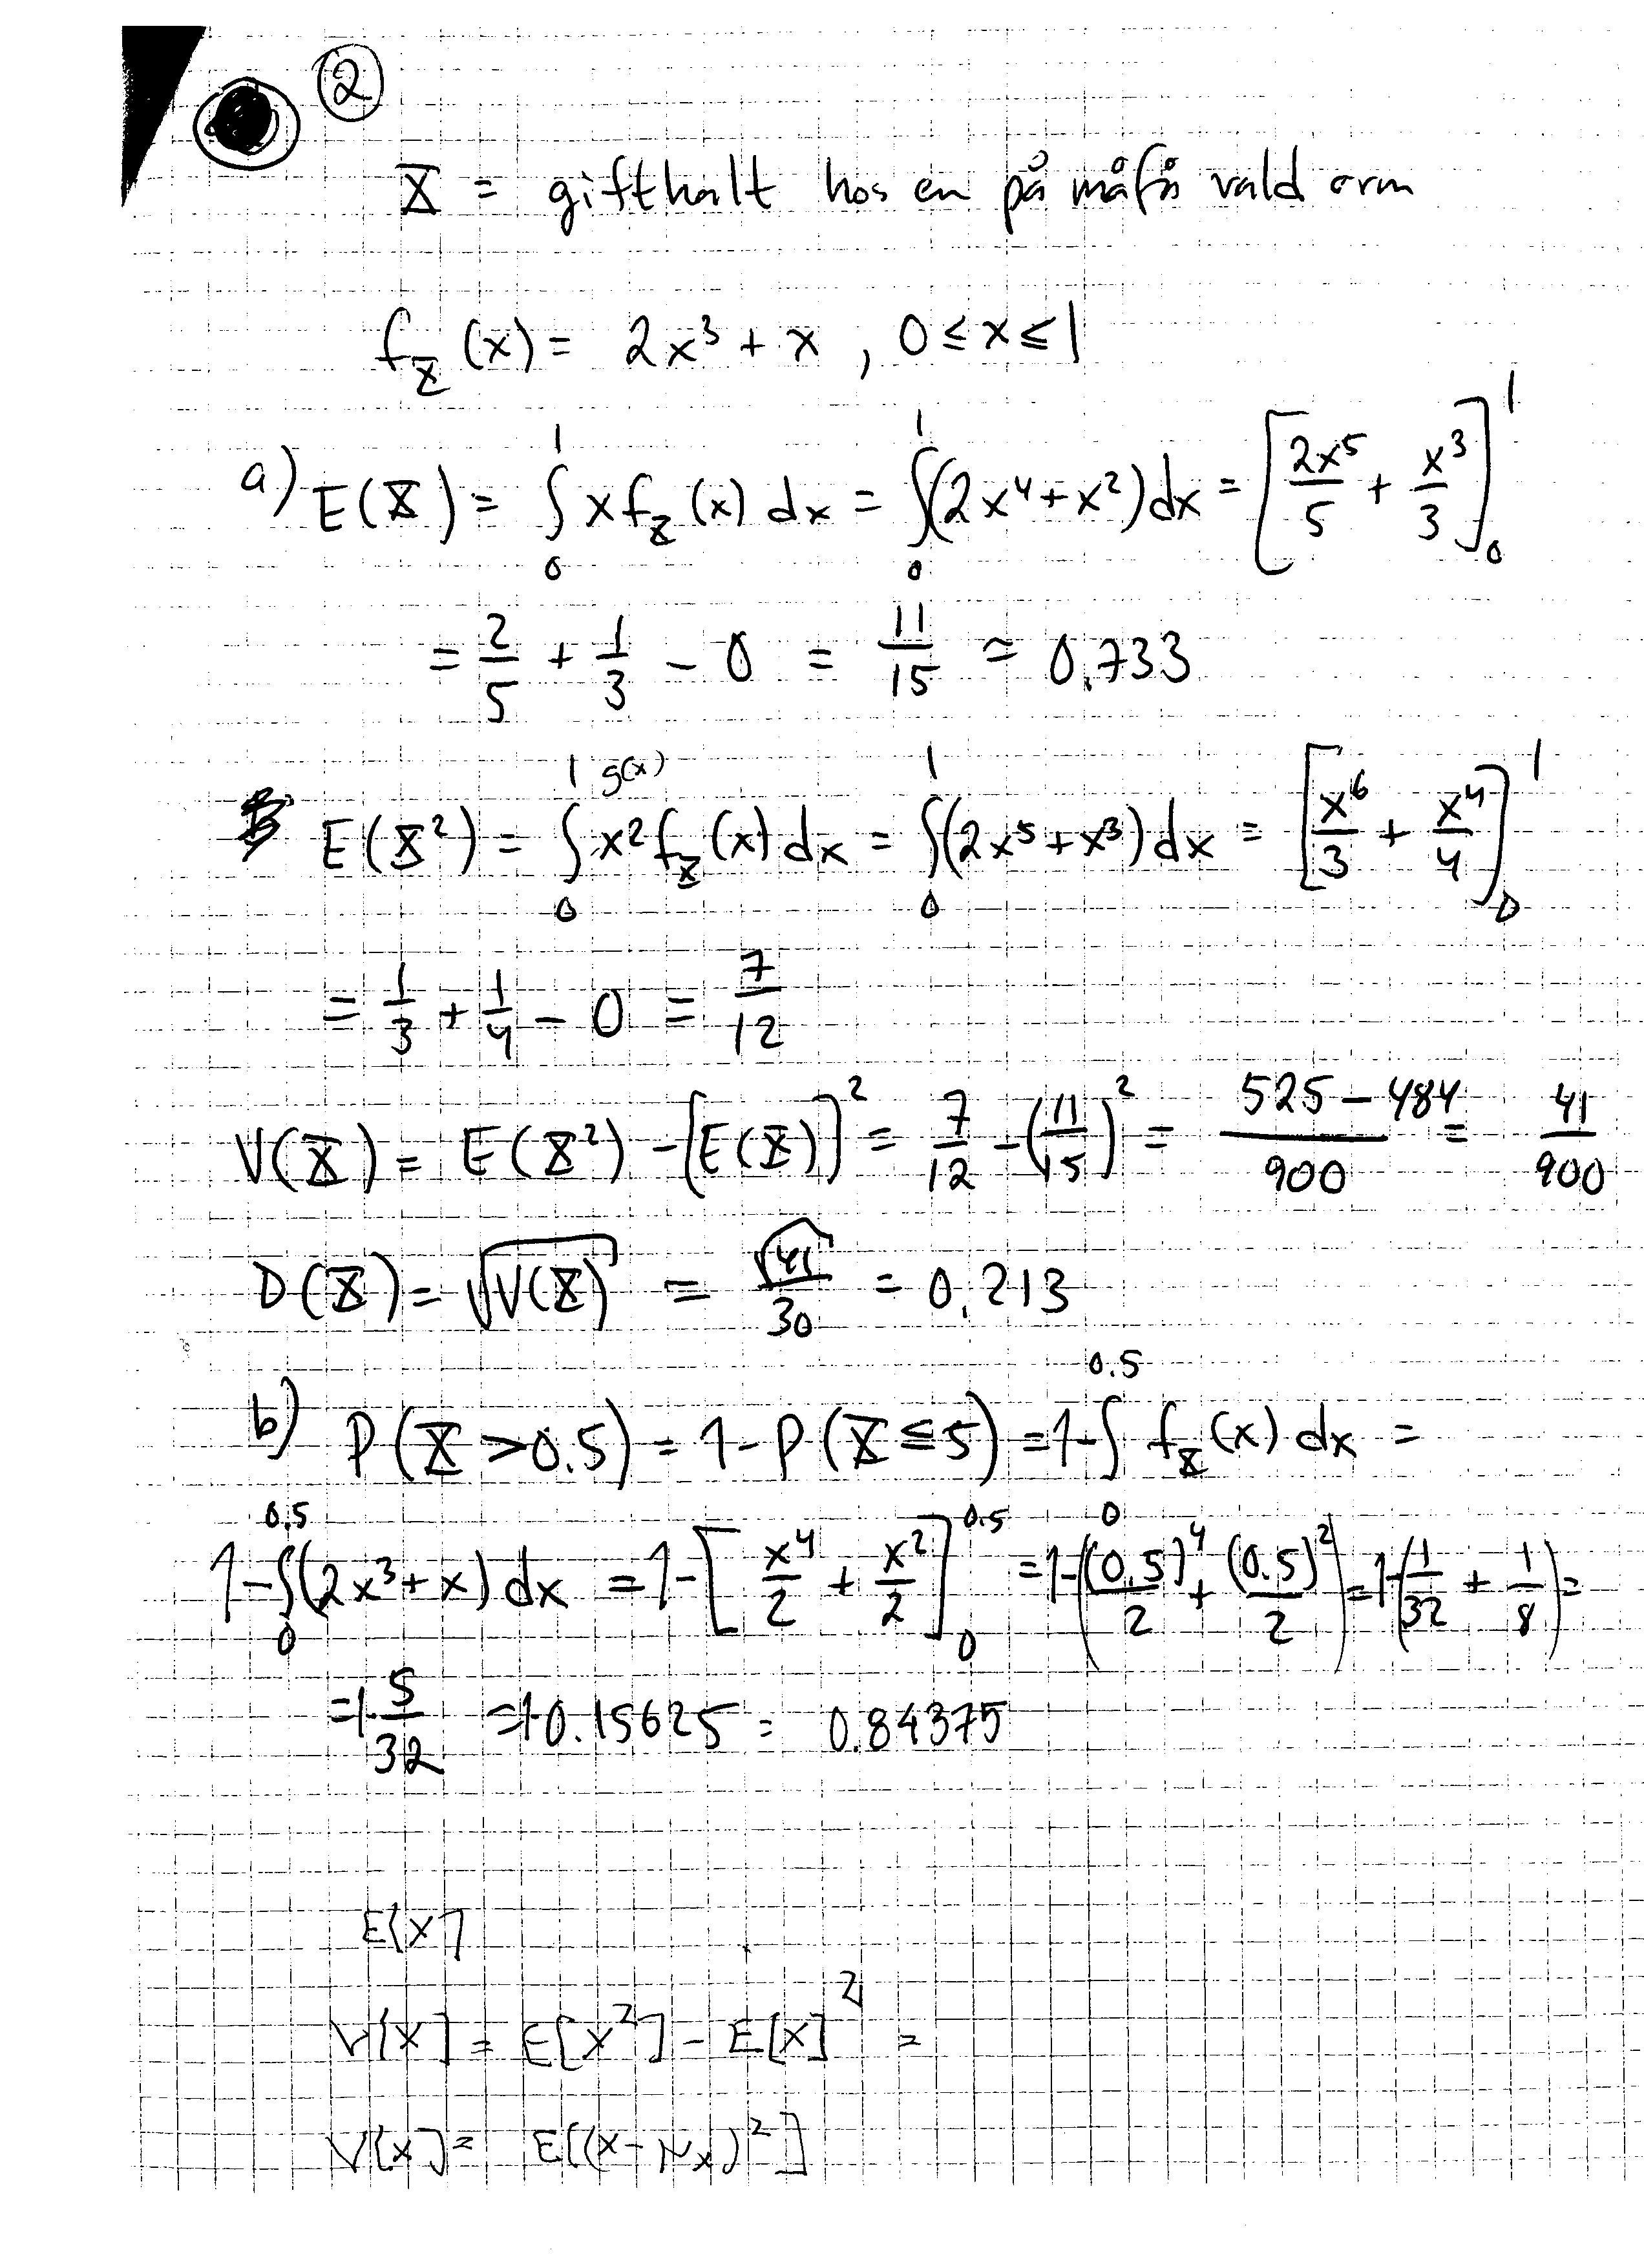 ②
X = gifthalt hos en på måfå vald orm
f_X (x) = 2x³ + x , 0 ≤ x ≤ 1
a) E(X) = ∫₀¹ x f_X (x) dx = ∫₀¹ (2x⁴ + x²) dx = [2x⁵/5 + x³/3]₀¹
= 2/5 + 1/3 - 0 = 11/15 ≈ 0.733
g(x)
E(X²) = ∫₀¹ x² f_X (x) dx = ∫₀¹ (2x⁵ + x³) dx = [x⁶/3 + x⁴/4]₀¹
= 1/3 + 1/4 - 0 = 7/12
V(X) = E(X²) - [E(X)]² = 7/12 - (11/15)² = (525 - 484)/900 = 41/900
D(X) = √V(X) = √41/30 = 0.213
b) P(X > 0.5) = 1 - P(X ≤ 5) = 1 - ∫₀^0.5 f_X (x) dx =
1 - ∫₀^0.5 (2x³ + x) dx = 1 - [x⁴/2 + x²/2]₀^0.5 = 1 - ((0.5)⁴/2 + (0.5)²/2) = 1 - (1/32 + 1/8) =
= 1 - 5/32 = 1 - 0.15625 = 0.84375
E[X]
V[X] = E[X²] - E[X]² =
V[X] = E[(X - μ_X)²]